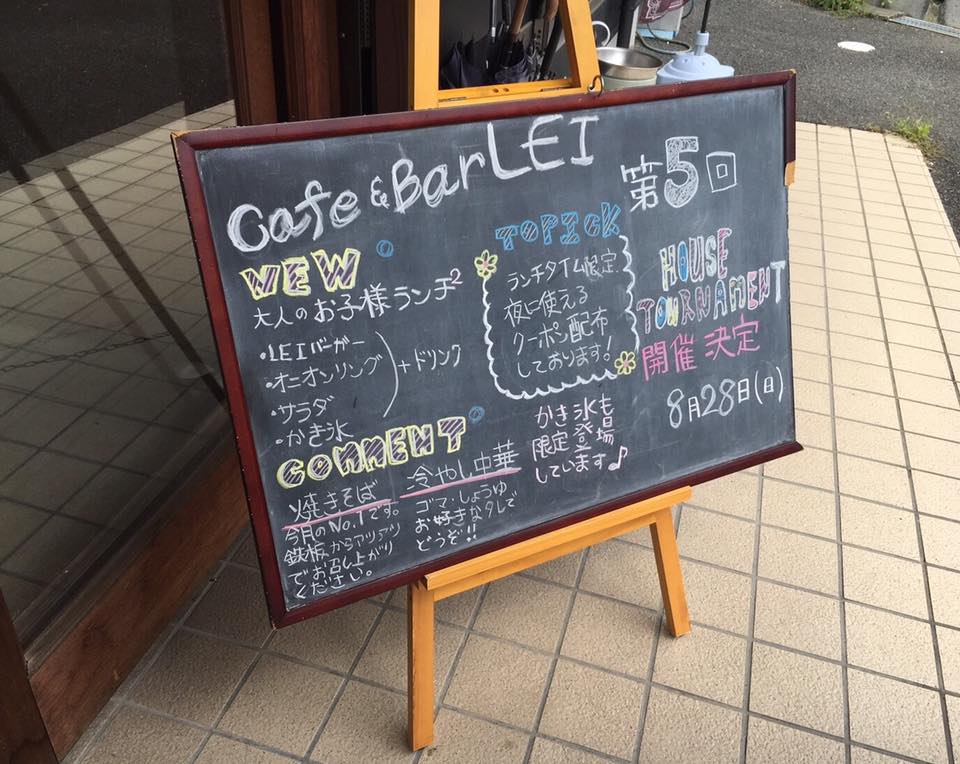 Cafe & Bar LEI
NEW
大人のお子様ランチ2
・LEIバーガー
・オニオンリング
・サラダ
・かき氷
+ドリンク
COMMENT
焼きそば
今月のNo.1です。
鉄板からアツアツ
でお召し上がり
ください。
冷やし中華
ゴマ・しょうゆ
お好きなタレで
どうぞ!!
TOPICK
ランチタイム限定
夜に使える
クーポン配布
しております!
かき氷も
限定登場
しています♪
第5回
HOUSE
TOURNAMENT
開催決定
8月28日(日)